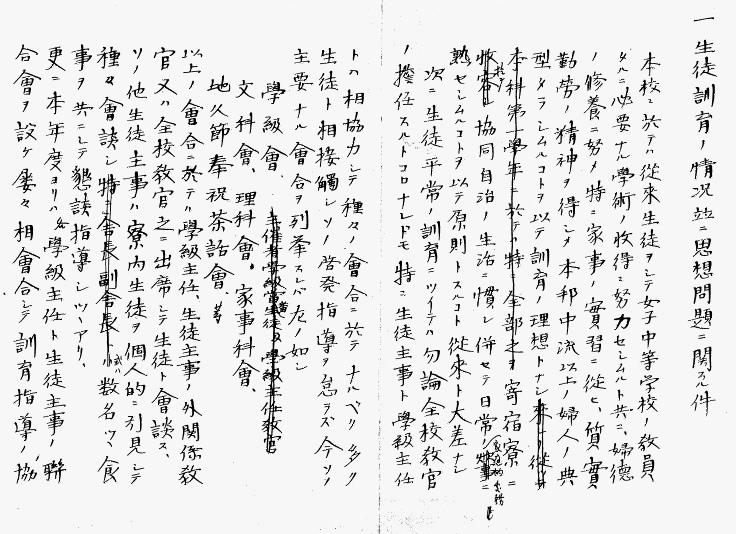 一 生徒訓育ノ情况並ニ思想問題ニ関スル件
本校ニ於テハ從來生徒ヲシテ女子中等学校ノ教員
タルニ必要ナル學術ノ收得ニ努力セシムルト共ニ、婦德
ノ修養ニ努メ特ニ家事ノ實習ニ從ヒ、質實
勤勞ノ精神ヲ得シメ本邦中流以上ノ婦人ノ典
型タラシムルコトヲ以テ訓育ノ理想トナシ來リ從
本科第一學年ニ於テハ特ニ全部之ヲ寄宿寮ニ
收容シ協同自治ノ生活ニ慣レ併セテ日常ノ
熟セシムルコトヲ以テ原則トスルコト從來ト大差ナシ
次ニ生徒平常ノ訓育ニツイテハ勿論全校教官
ノ擔任スルトコロナレドモ特ニ生徒主事ト學級主任
トハ相協力シテ種々ノ會合ニ於テナルベク多ク
生徒ト相接觸シソノ啓発指導ヲ怠ラズ今ソノ
主要ナル會合ヲ列挙スレバ左ノ如シ
學級會、主催者學級當生徒及學級主任教官
文科會、理科會、家事科會、
地久節奉祝茶話會等
以上ノ會合ニ於テハ學級主任、生徒主事ノ外関係教
官又ハ全校教官之ニ出席シテ生徒ト會談ス、
ソノ他生徒主事ハ寮内生徒ヲ個人的ニ引見シテ
種々會談シ特ニ舍長副舍長ト或ハ数名ツヽ食
事ヲ共ニシテ懇談指導シツヽアリ、
更ニ本年度ヨリハ各學級主任ト生徒主事ノ聯
合會ヲ設ケ屡々相會合シテ訓育指導ノ協